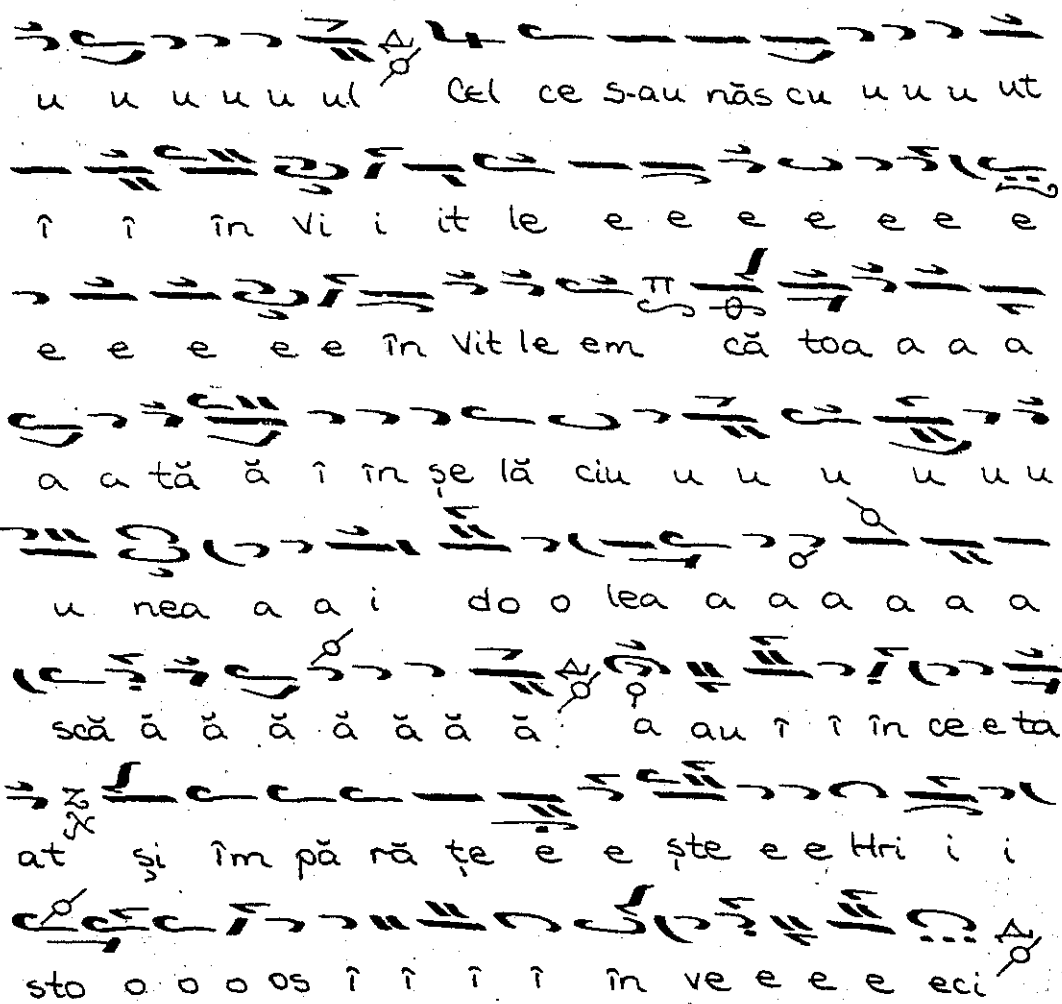 u u u u u ul Cel ce s-au năs cu u u u ut
î î în Vi i it le e e e e e e e
e e e e e în Vit le em că toa a a a
a a tă ă î în șe lă ciu u u u u u u
u nea a a i do o lea a a a a a a
scă ă ă ă ă ă ă ă a au î î în ce e ta
at și îm pă ră țe e e ște e e Hri i i
sto o o o os î î î î în ve e e e eci